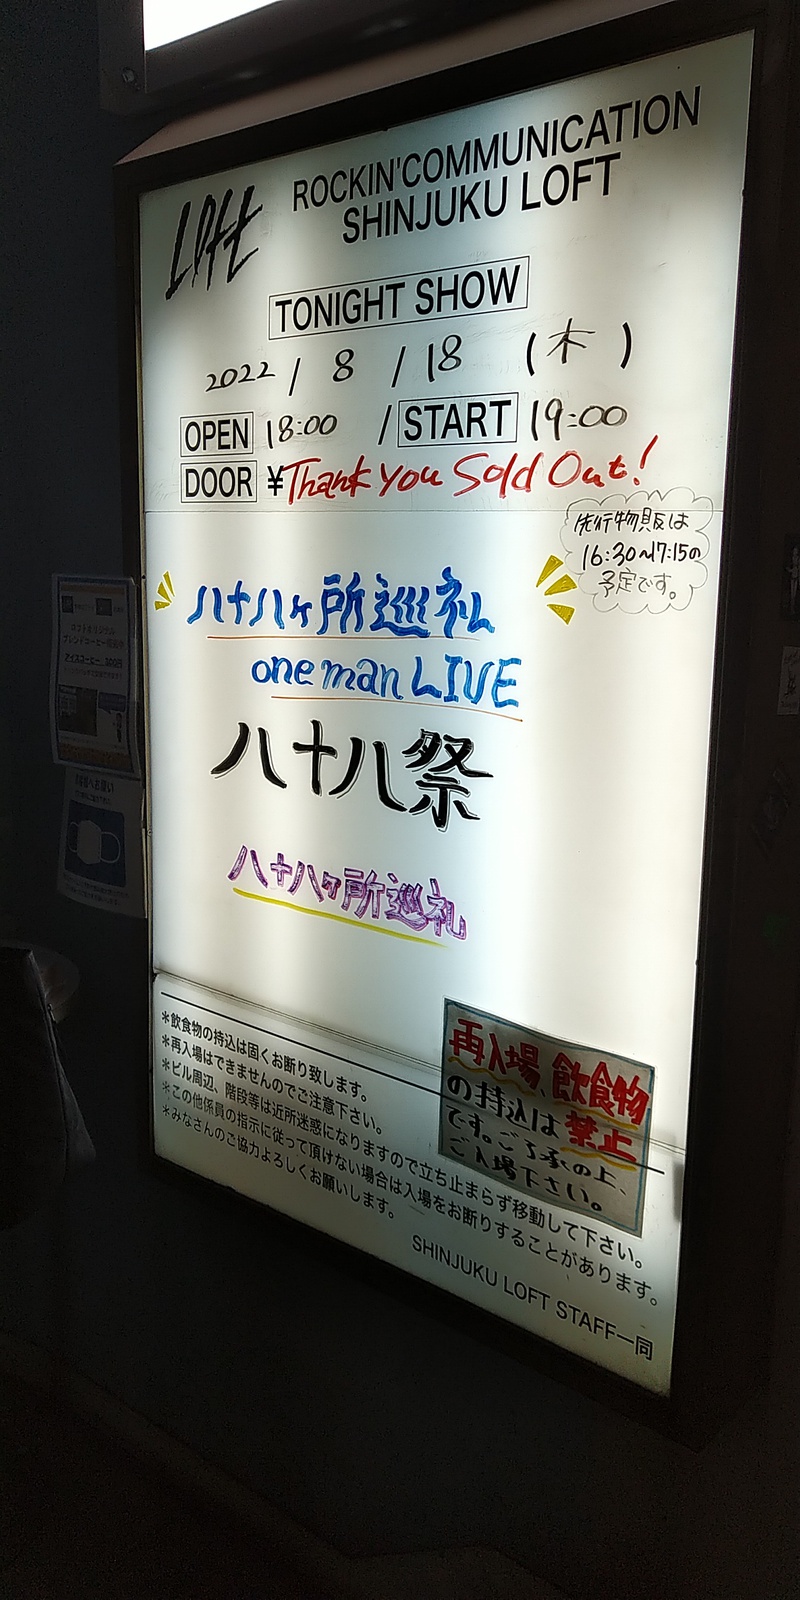 Loft
ROCKIN'COMMUNICATION
SHINJUKU LOFT
TONIGHT SHOW
2022 / 8 / 18 (木)
OPEN 18:00 / START 19:00
DOOR ¥Thank you Sold Out!
先行物販は
16:30~17:15の
予定です。
八十八ヶ所巡礼
one man LIVE
八十八祭
八十八ヶ所巡礼
＊飲食物の持込は固くお断り致します。
＊再入場はできませんのでご注意下さい。
＊ビル周辺、階段等は近所迷惑になりますので立ち止まらず移動して下さい。
＊この他係員の指示に従って頂けない場合は入場をお断りすることがあります。
＊みなさんのご協力よろしくお願いします。
SHINJUKU LOFT STAFF一同
再入場、飲食物
の持込は禁止
です。ご了承の上、
ご入場下さい。